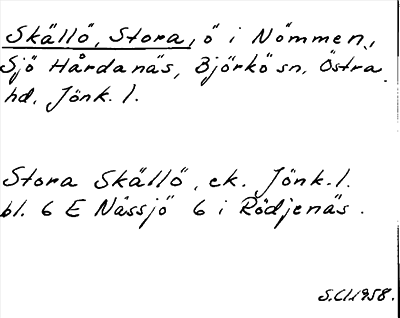 Skällö, Stora, ö i Nömmen,
Sjö Hårdanäs, Björkö sn. Östra
hd. Jönk. l.
Stora Skällö, ek. Jönk. l.
bl. 6 E Nässjö 6 i Rödjenäs.
S.Cl.1958.